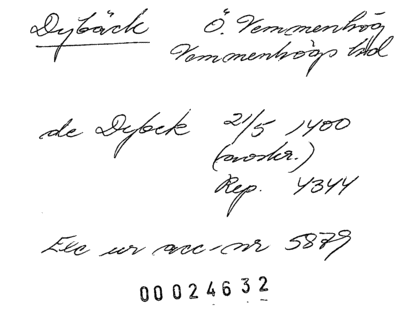 Dybäck Ö. Vemmenhög
Vemmenhögs hd
de Dybek 21/5 1400
(avskr.)
Rep. 4344
Exc ur acc-nr 5879
00024632